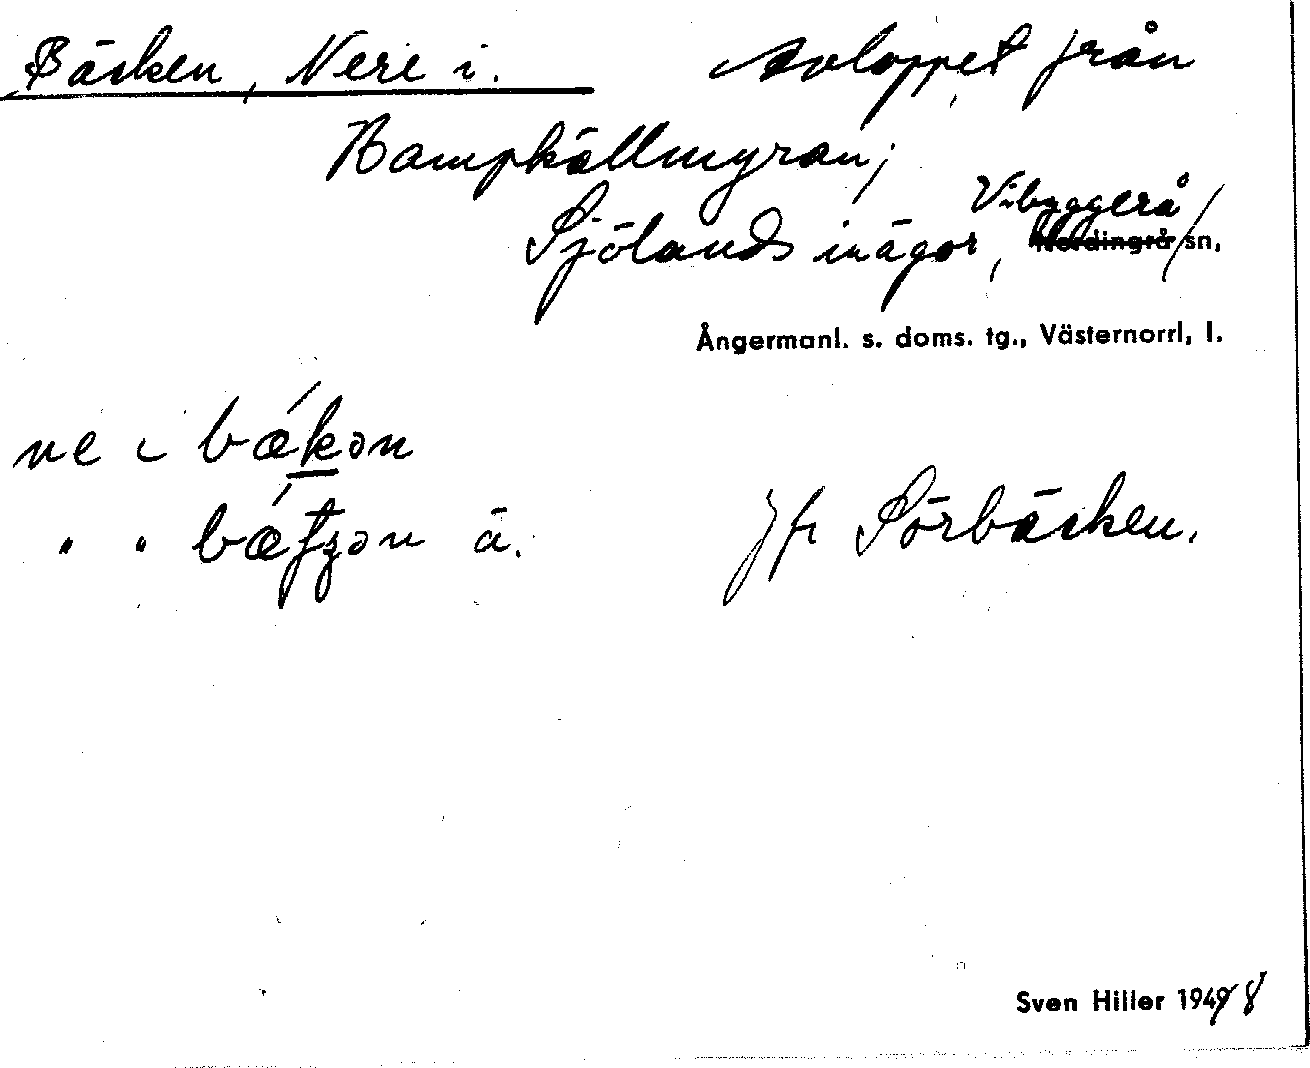 Bäcken, Nere i. Avloppet från
Kampkällmyran;
Sjölands inägor, Vibyggerå
Nordingrå sn,
Ångermanl. s. doms. tg., Västernorrl, l.
ne i bækən
" " bætʃən ä. Jfr Sörbäcken.
Sven Hiller 1949 8